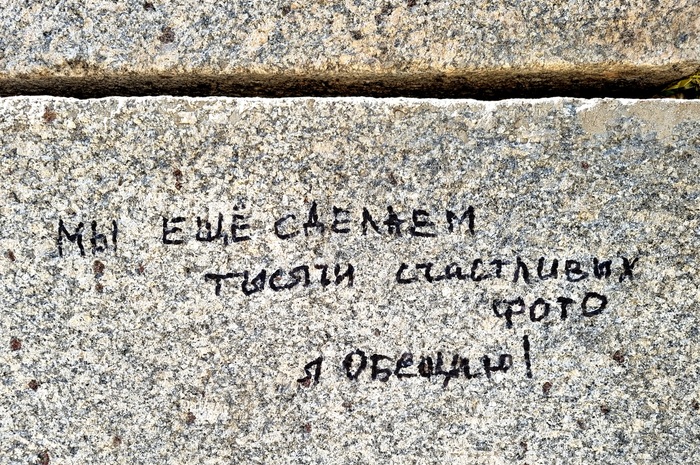 МЫ ЕЩЁ СДЕЛАЕМ
тысячи счастливых
фото
я обещаю!